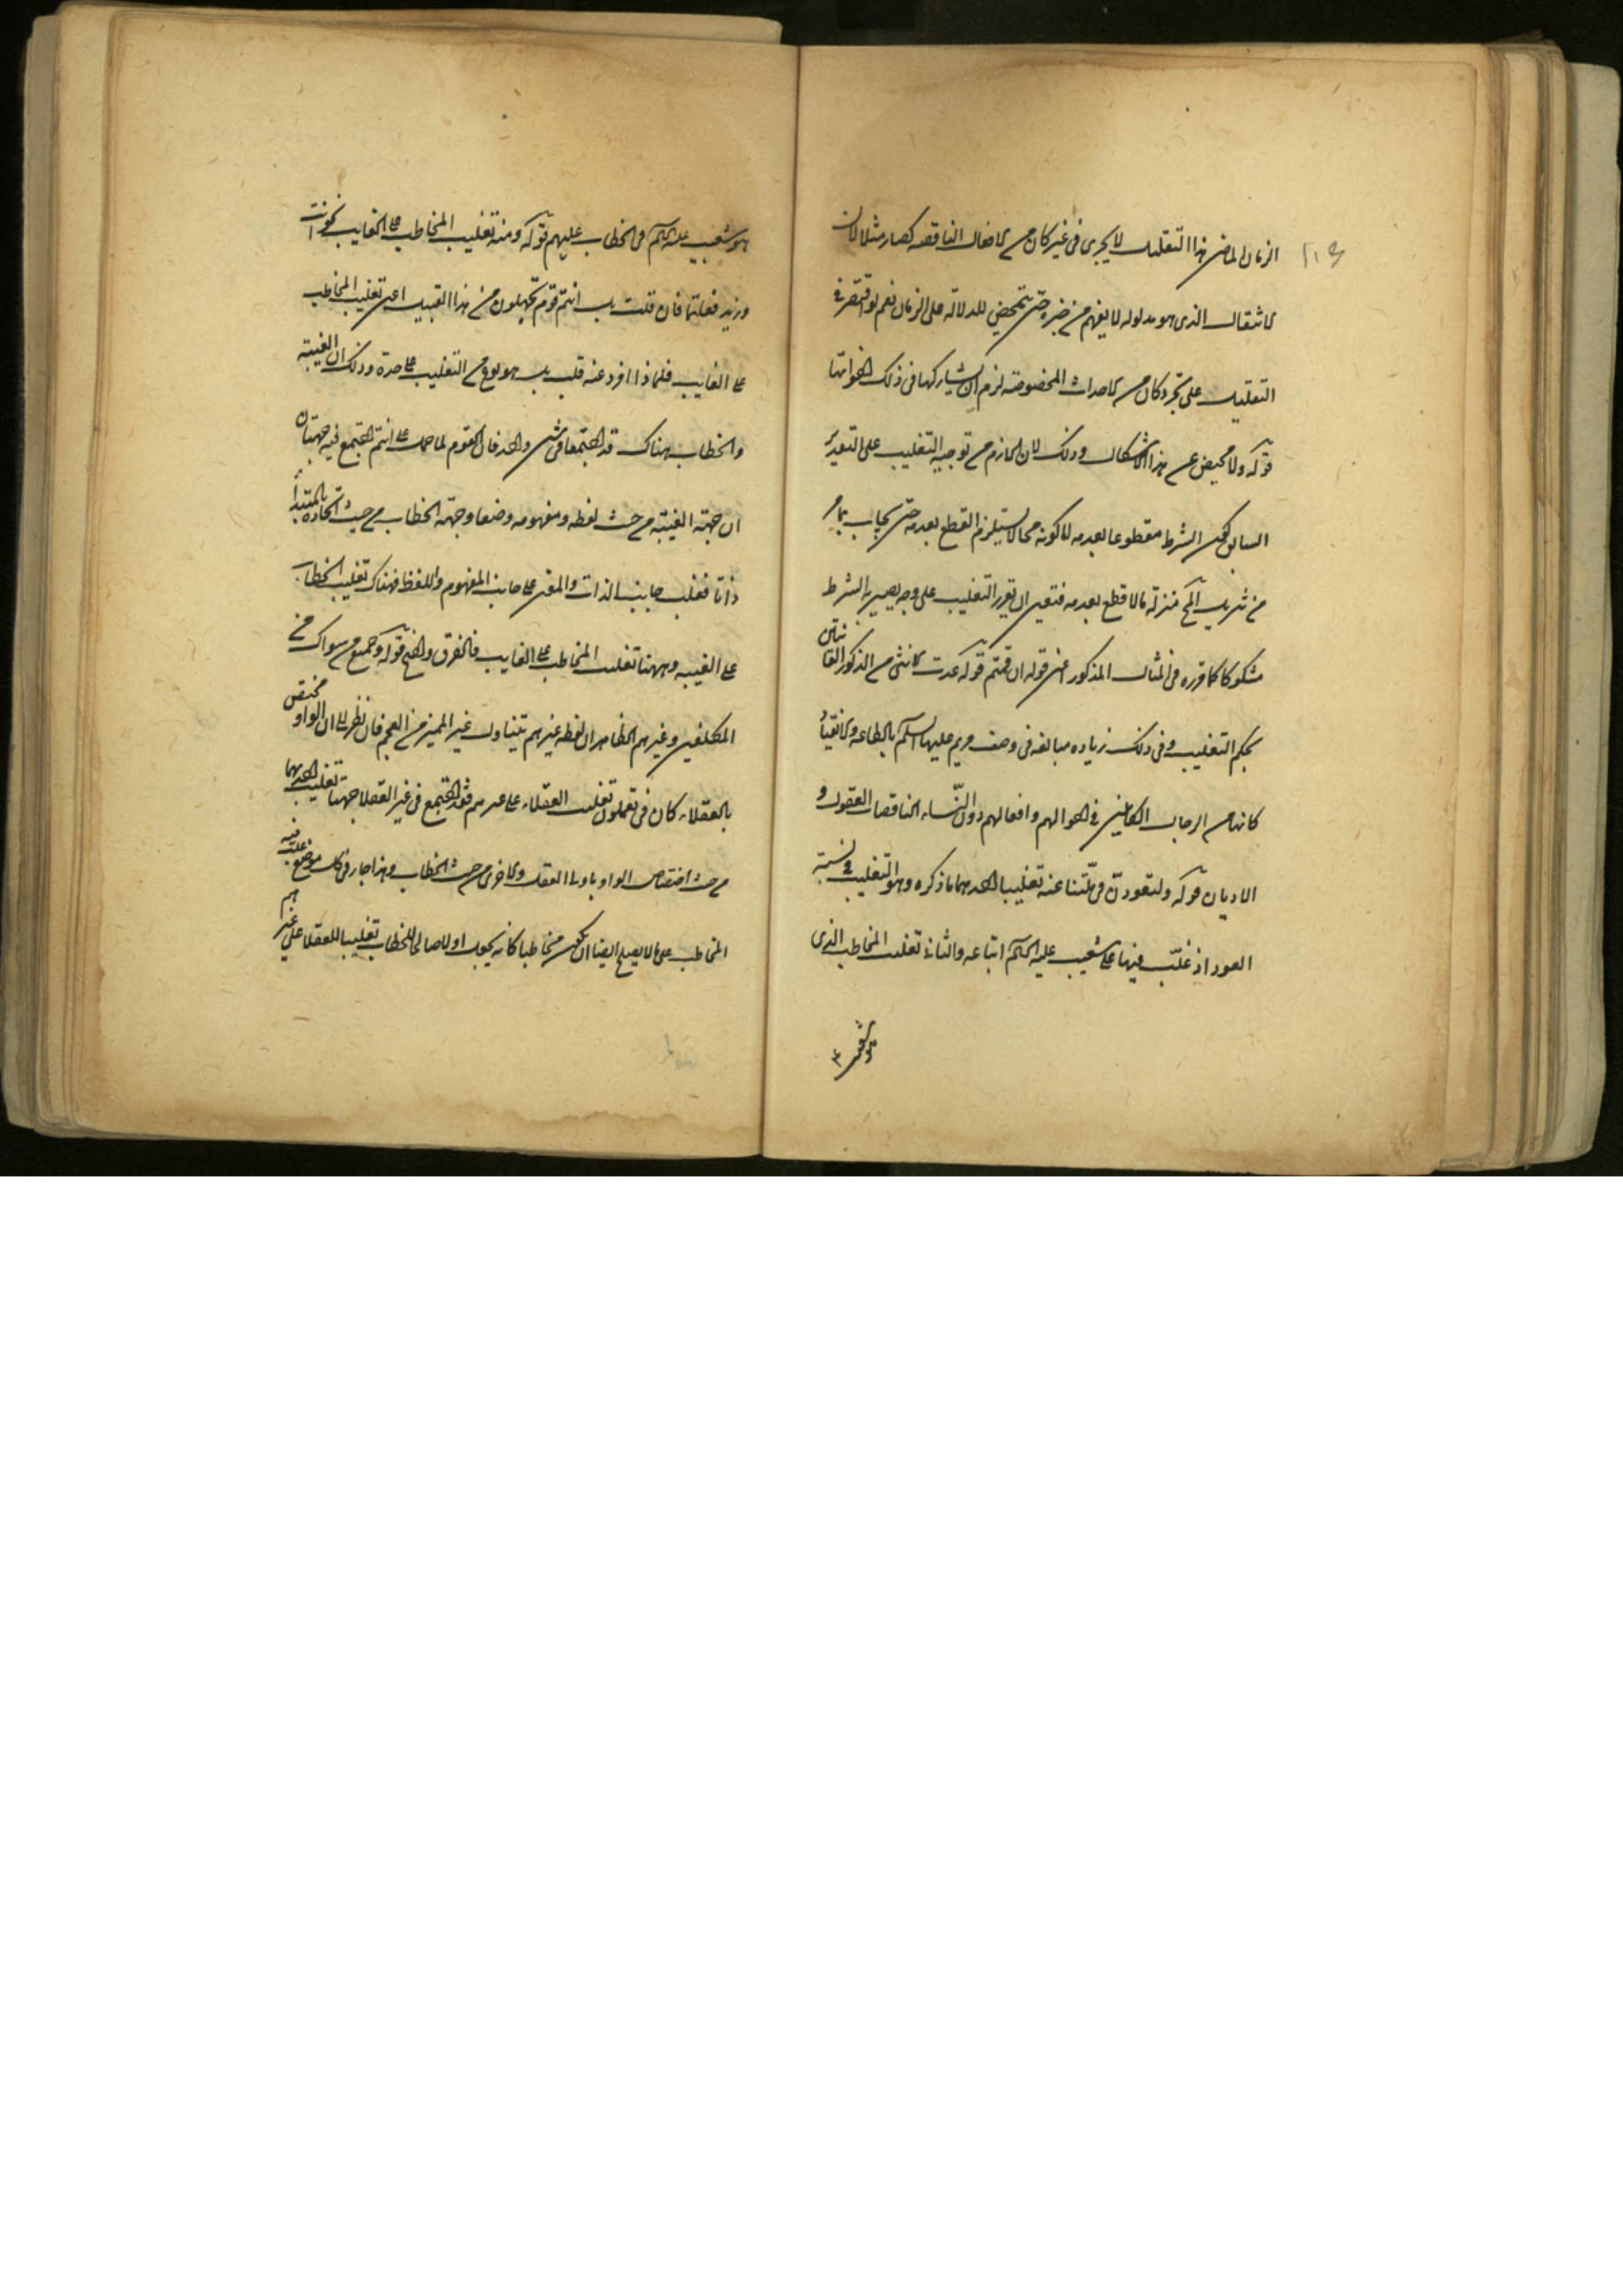 الزمان الماضى هذا التعليل لا يجرى فى غير كان من الافعال الناقصه كصار مثلا لان
الانتقال الذى هو مدلوله لا يفهم من خبره حتى يتمحض للدلالة على الزمان نعم لو اقتصر فى
التعليل على تجرد كان من الاحداث المخصوصة لزم ان يشاركها فى ذلك اخواتها
قوله ولا محيص عن هذا الاشكال وذلك لان اللازم من توجيه التغليب على التقدير
السابق كون الشرط مقطوعا بعدمه لا كونه محالا يستلزم القطع بعدمه حتى يجاب بما مر
من تنزيل المح منزلة ما لا قطع بعدمه فتعين ان يقرر التغليب على وجه يصير به الشرط
مشكوكا كما قرره فى المثال المذكور اعنى قوله ان قمتم قوله عدت الانثى من الذكور القانتين
بحكم التغليب وفى ذلك زياده مبالغه فى وصف مريم عليها السلم بالطاعه والانقياد
كانها من الرجال الكاملين فى احوالهم وافعالهم دون النساء الناقصات العقول و
الاديان قوله ولتعودن فى ملتنا عنه تغليبا احدهما ما ذكره وهو التغليب فى نسبة
العود اذ غلب فيها على شعيب عليه السلم اتباعه والثانى تغليب المخاطب الذى
هو شعيب عليه السلم فى الخطاب عليهم قوله ومنه تغليب المخاطب على الغايب نحو انت
وزيد فعلتما فان قلت بل انتم قوم تجهلون من هذا القبيل اعنى تغليب المخاطب
على الغايب فلماذا افرد عنه قلت بل هو نوع من التغليب على حدة وذلك ان الغيبة
والخطاب هناك قد اجتمعا فى شىء واحد فان القوم لما حمل على انتم اجتمع فيه جهتان
ان جهة الغيبة من حيث لفظه ومفهومه وضعا وجهة الخطاب من حيث اتحاده بالمبتدأ
ذاتا فغلب جانب الذات والمعنى على جانب المفهوم واللفظ فهناك تغليب الخطاب
على الغيبه وههنا تغليب المخاطب على الغايب فالفرق واضح قوله وجميع من سواك من
المكلفين وغيرهم الظاهر ان لفظه غيرهم تتناول غير المميز من العجم فان نظر الى ان الواو مختص
بالعقلاء كان فى تعملون تغليب العقلاء على غيرهم فقد اجتمع فى غير العقلا جهتا تغليب احديهما
من حيث اختصاص الواو باولى العقل والاخرى من حيث الخطاب وهذا جار فى كل موضع غلب فيه
المخاطب على ما لا يصلح ايضا ان يكون مخاطبا كانه يجعل اولا صالحا للخطاب تغليبا للعقلا على غيرهم